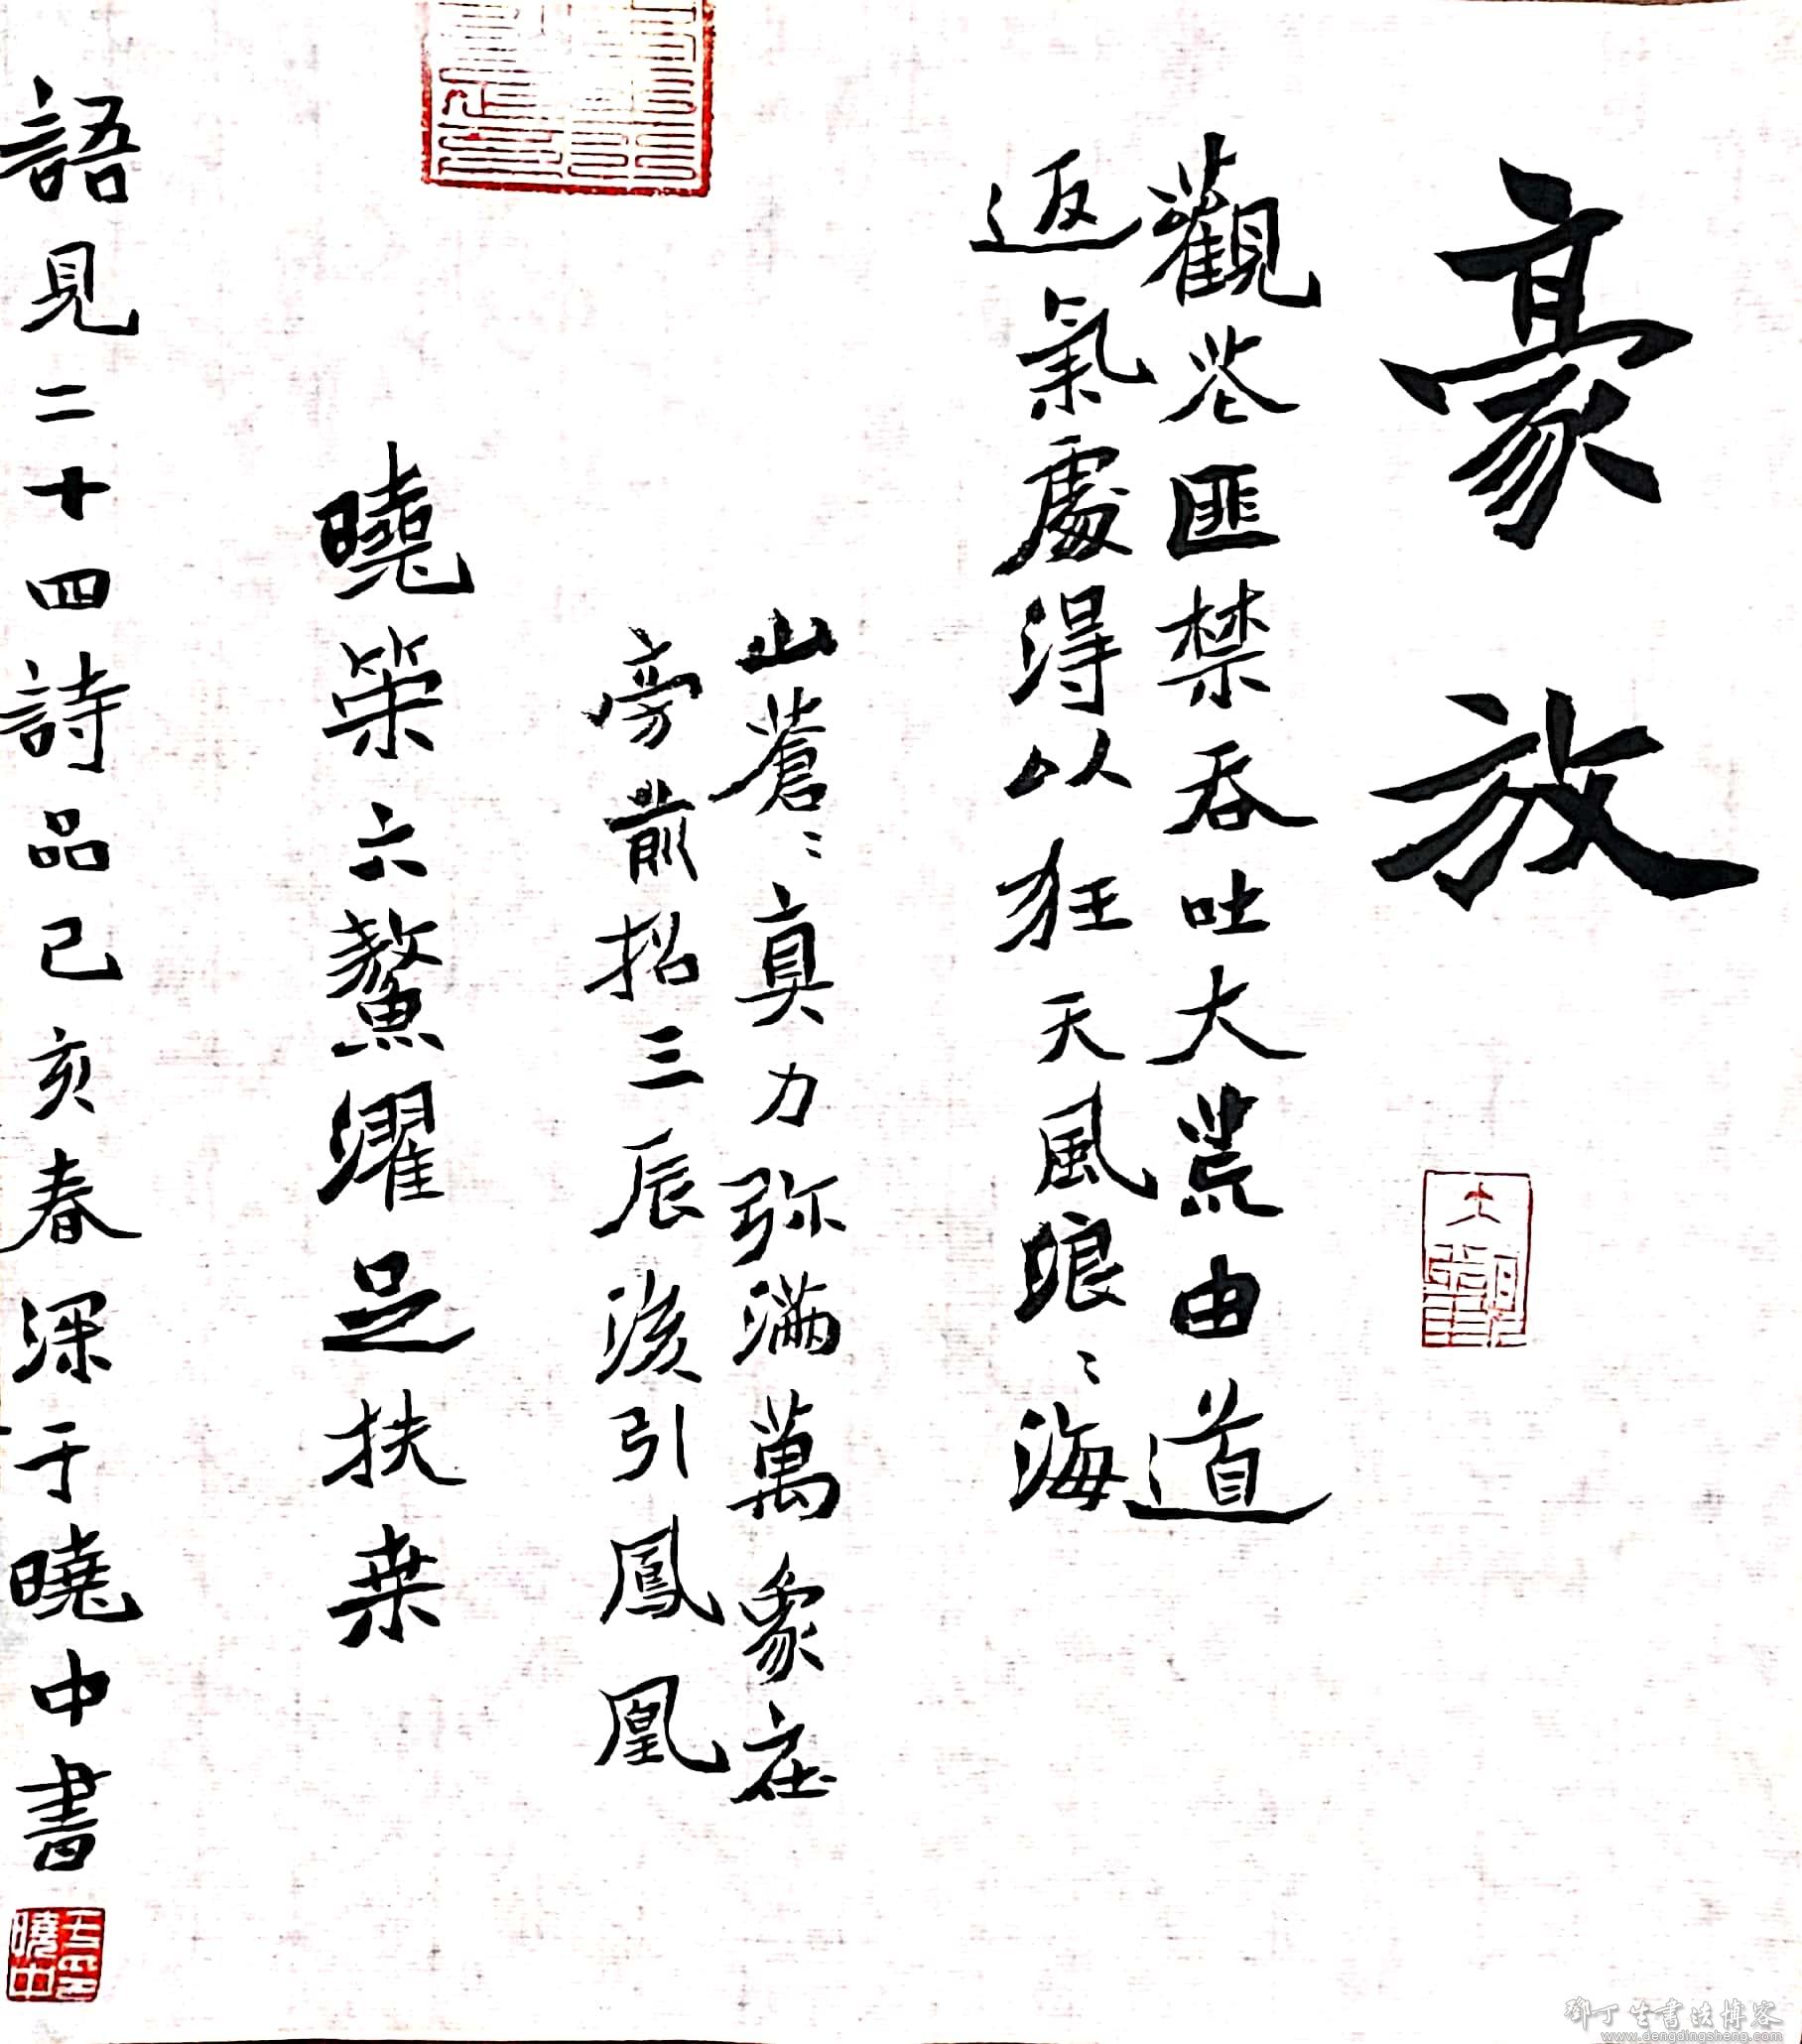 豪放
觀花匪禁吞吐大荒由道
返氣處得以狂天風浪〻海
山蒼〻真力弥滿萬象在
旁前招三辰後引鳳凰
曉策六鰲濯足扶桒
語見二十四詩品己亥春深于曉中書
于印曉中
鄧丁生書法博客
www.dengdingsheng.com